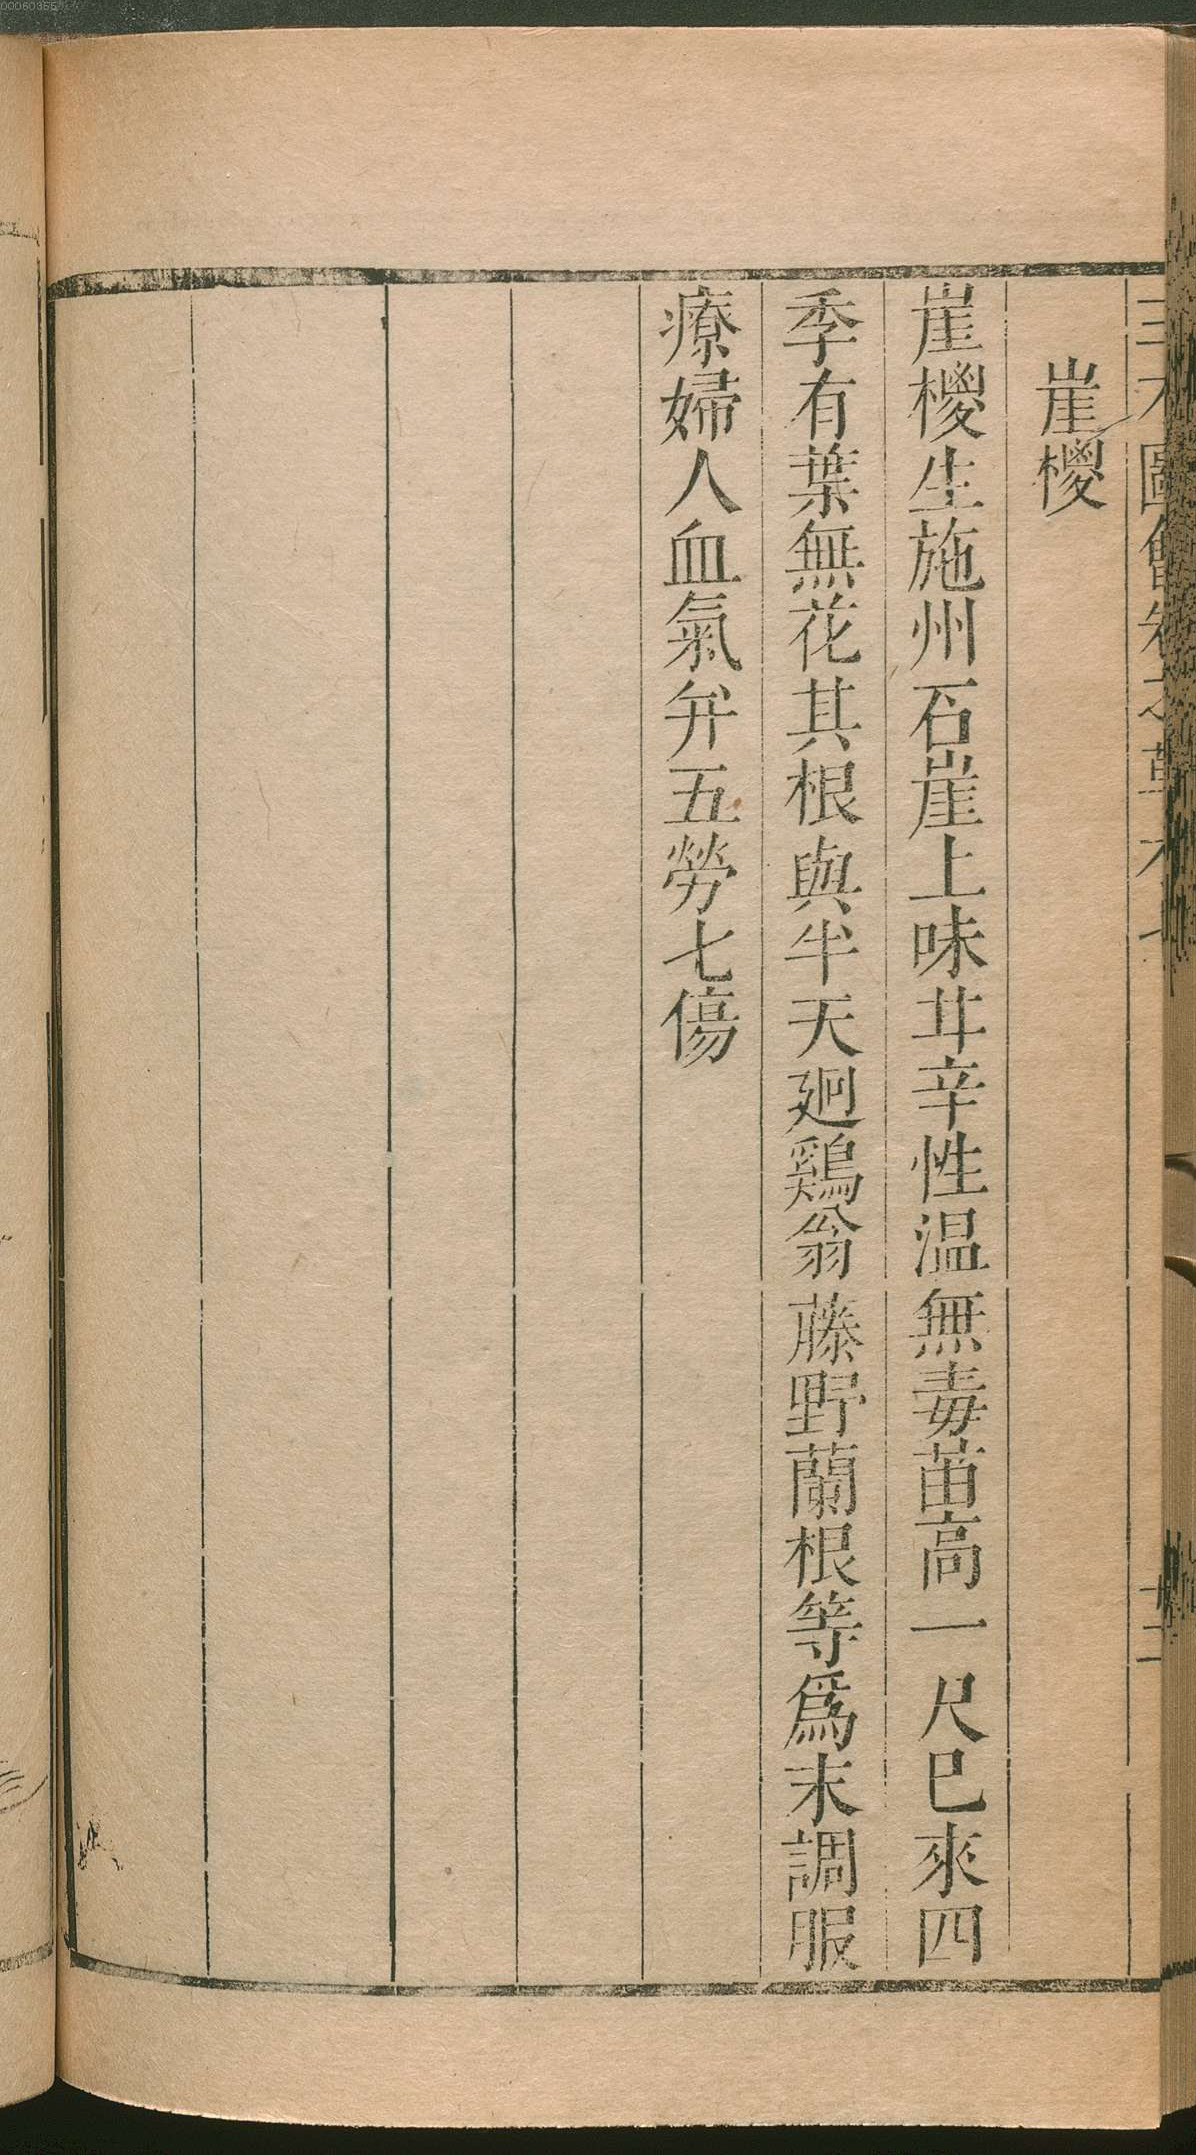 崖椶
崖椶生施州石崖上味甘辛性温無毒苗高一尺巳來四
季有葉無花其根與半天廻鷄翁藤野蘭根等爲末調服
療婦人血氣并五勞七傷
00060355